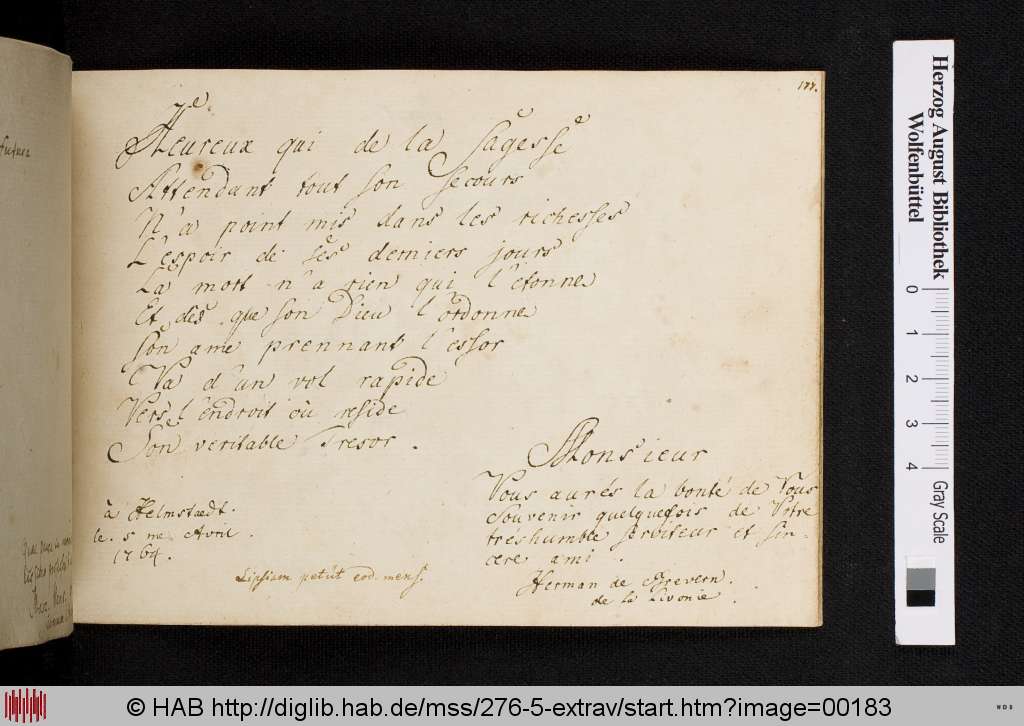 177.
Heureux qui de la Sagesse
Attendant tout son secours
N'a point mis dans les richesses
L'espoir de ses derniers jours
La mort n'a rien qui l'etonne
Et des que son Dieu l'ordonne
Son ame prennant l'essor
Va d'un vol rapide
Vers l'endroit où reside
Son veritable Tresor.
à Helmstaedt.
le 5 me Avril.
1764.
Lipsiam petiit eod. mens.
Monsieur
Vous aurés la bonté de Vous
Souvenir quelquefois de Votre
treshumble serviteur et sin-
cere ami.
Herman de Brevern.
de la Livonie.
futura
Herzog August Bibliothek
Wolfenbüttel
0 1 2 3 4 Gray Scale
© HAB http://diglib.hab.de/mss/276-5-extrav/start.htm?image=00183
WDB